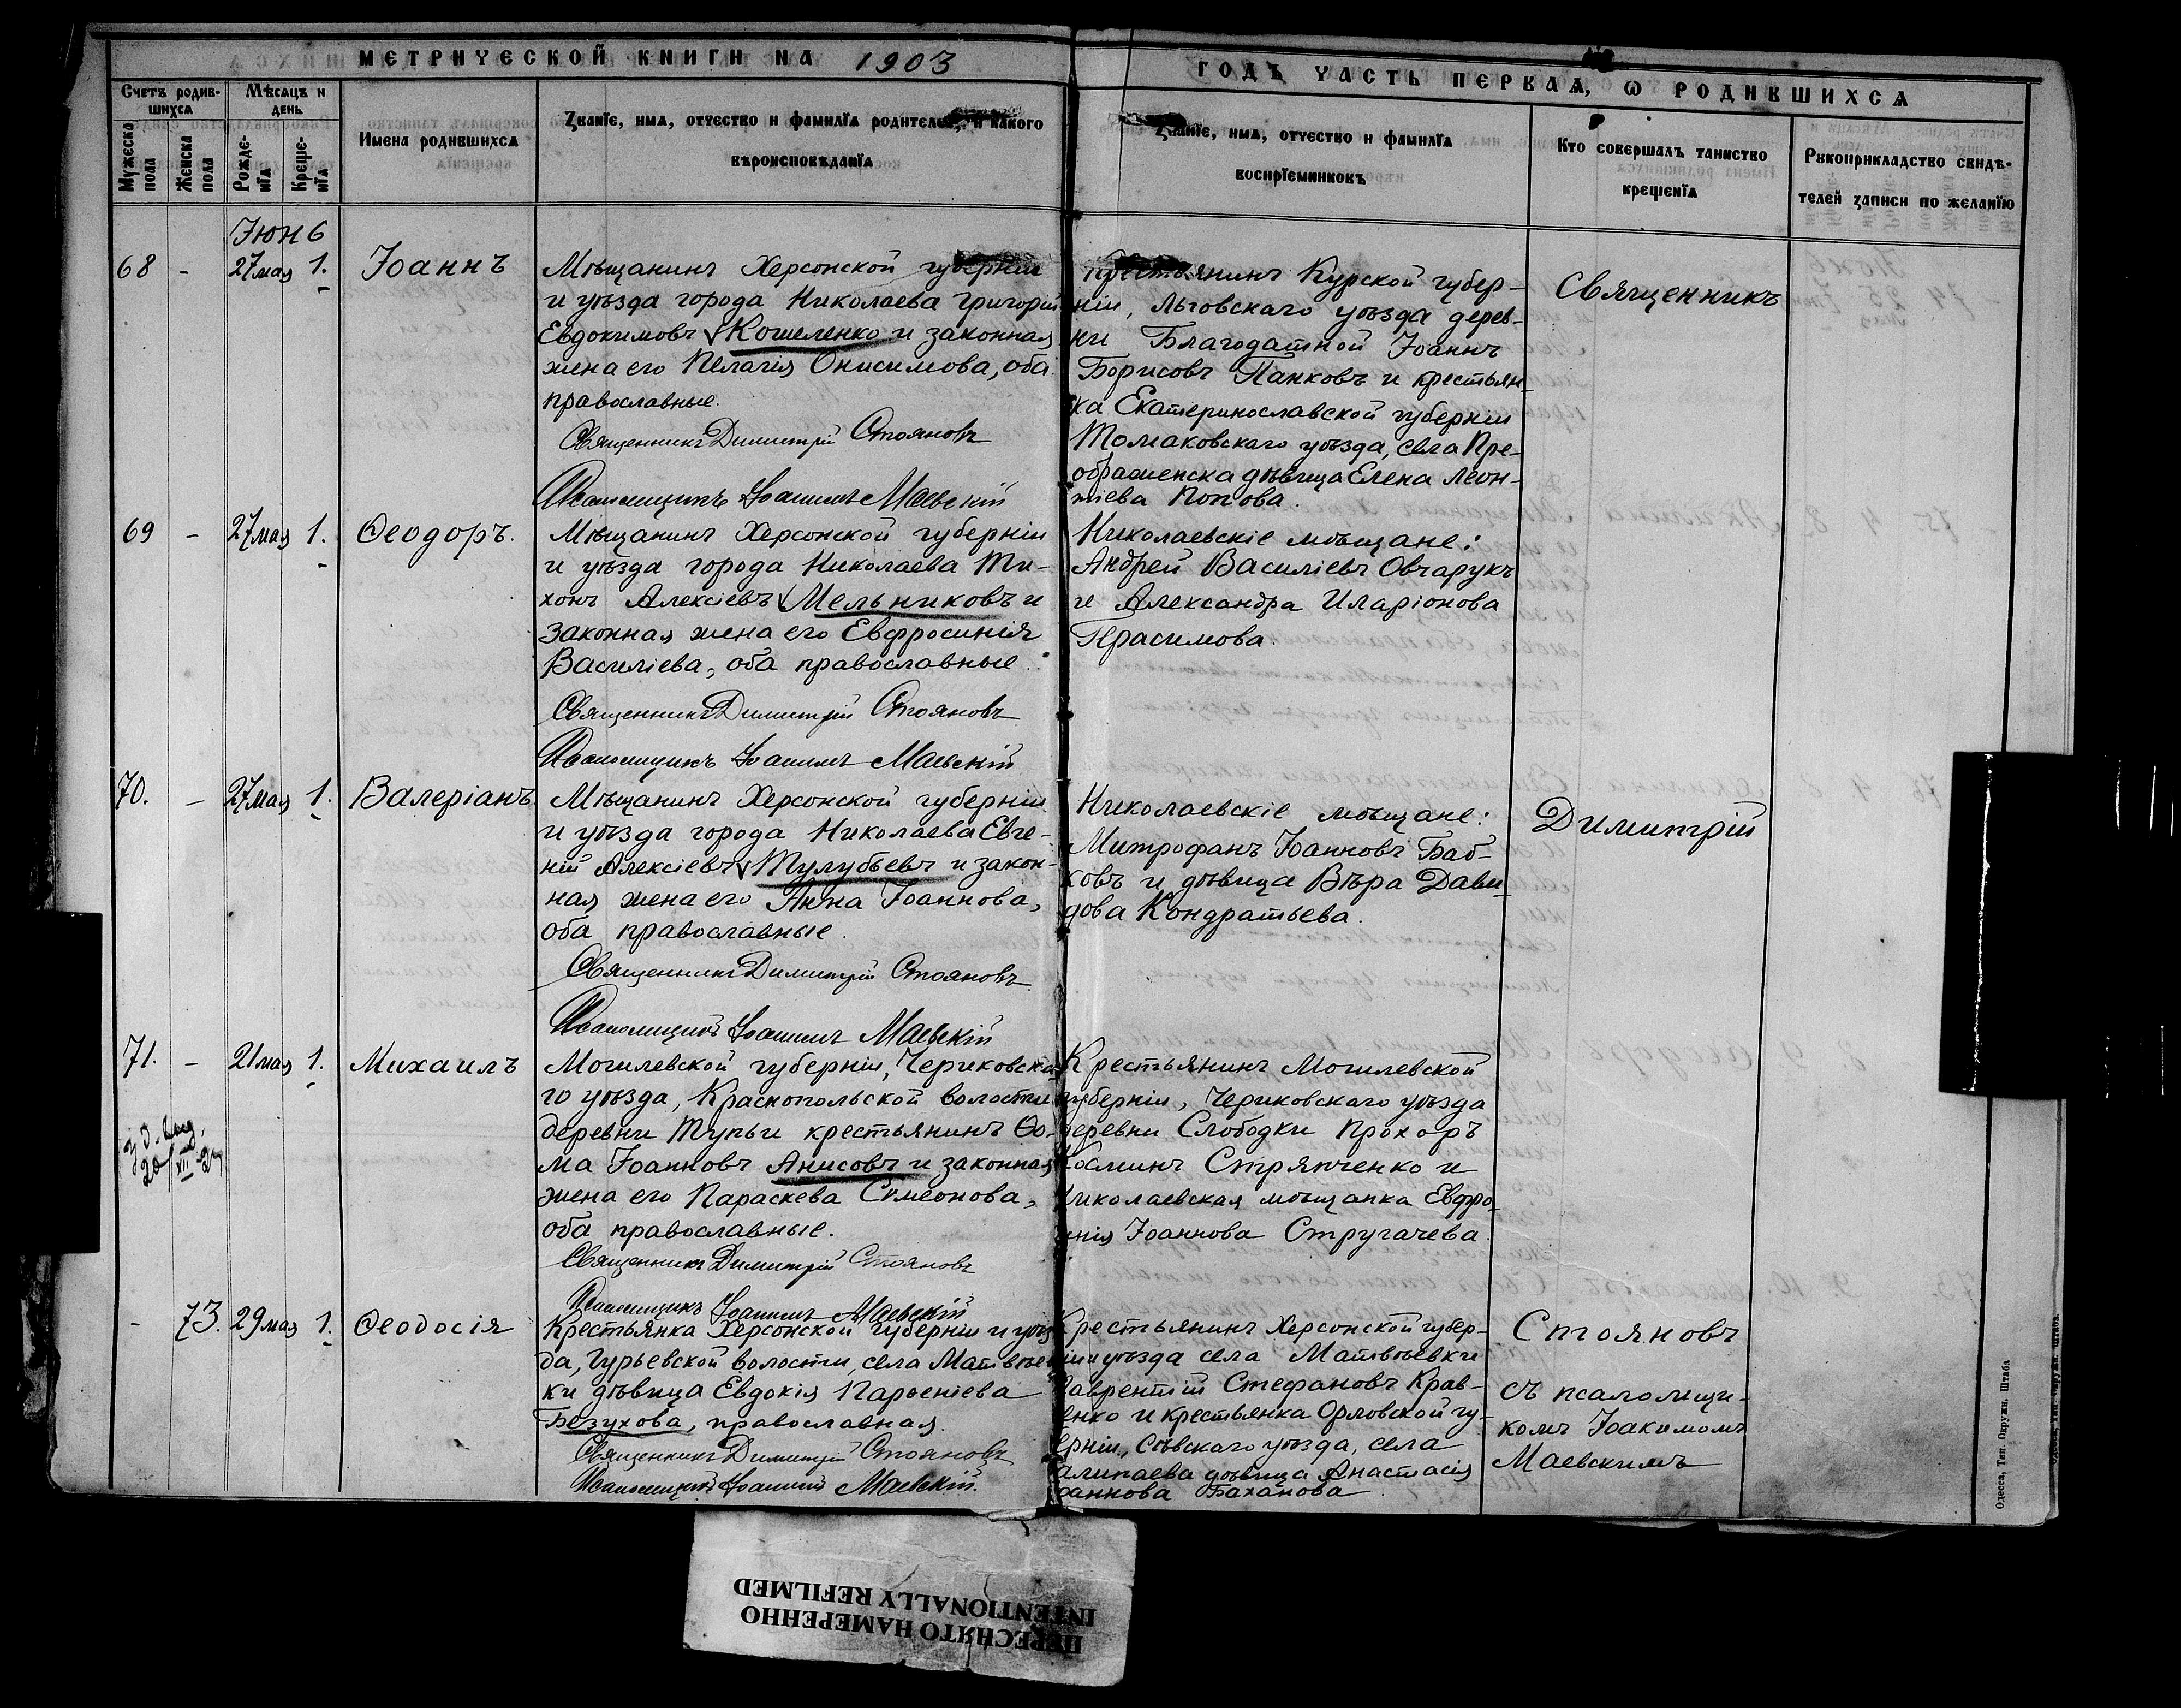 МЕТРИЧЕСКОЙ КНИГИ НА 1903
ГОДЪ ЧАСТЬ ПЕРВАЯ, Ѡ РОДИВШИХСЯ
Счетъ родив-
шихся
Мѣсяцъ и
день
Мужеска
пола
Женска
пола
Рожде-
нія
Креще-
нія
Имена родившихся
Званіе, имя, отчество и фамилія родителей, и какого
вѣроисповѣданія
Званіе, имя, отчество и фамилія
воспріемниковъ
Кто совершалъ таинство
крещенія
Рукоприкладство свидѣ-
телей записи по желанію
Іюнь
68 - 27 мая 1. Іоаннъ
Мѣщанинъ Херсонской губерніи
и уѣзда города Николаева Григорій
Евдокимовъ Кошеленко и законная
жена его Пелагія Онисимова, оба
православные.
Священникъ Димитрій Стояновъ
Псаломщикъ Іоакимъ Маевскій
Крестьянинъ Курской губер-
ніи, Льговскаго уѣзда дерев-
ни Благодатной Іоаннъ
Борисовъ Панковъ и крестьян-
ка Екатеринославской губерніи
Томаковскаго уѣзда, села Пре-
ображенска дѣвица Елена Леон-
тіева Попова.
Священникъ
69 - 27 мая 1. Ѳеодоръ.
Мѣщанинъ Херсонской губерніи
и уѣзда города Николаева Ти-
хонъ Алексіевъ Мельниковъ и
законная жена его Евфросинія
Василіева, оба православные.
Священникъ Димитрій Стояновъ
Псаломщикъ Іоакимъ Маевскій
Николаевскіе мѣщане:
Андрей Василіевъ Овчарукъ
и Александра Иларіонова
Герасимова.
70. - 27 мая 1. Валеріанъ
Мѣщанинъ Херсонской губерніи
и уѣзда города Николаева Евге-
ній Алексіевъ Тулубьевъ и закон-
ная жена его Анна Іоаннова,
оба православные.
Священникъ Димитрій Стояновъ
Псаломщикъ Іоакимъ Маевскій
Николаевскіе мѣщане:
Митрофанъ Іоанновъ Баб-
ковъ и дѣвица Вѣра Дави-
дова Кондратьева.
Димитрій
71. - 21 мая 1. Михаилъ
Могилевской губерніи, Чериковска-
го уѣзда, Краснопольской волости
деревни Тупьи крестьянинъ Ѳо-
ма Іоанновъ Анисовъ и законная
жена его Параскева Симеонова,
оба православные.
Священникъ Димитрій Стояновъ
Псаломщикъ Іоакимъ Маевскій
Крестьянинъ Могилевской
губерніи, Чериковскаго уѣзда
деревни Слободки Прохоръ
Косминъ Стряпченко и
Николаевская мѣщанка Евфро-
інія Іоаннова Стругачева.
- 73. 29 мая 1. Ѳеодосія
Крестьянка Херсонской губерніи и уѣз-
да, Гурьевской волости, села Матвѣев-
ки дѣвица Евдокія Парѳеніева
Безухова, православная.
Священникъ Димитрій Стояновъ
Псаломщикъ Іоакимъ Маевскій.
Крестьянинъ Херсонской губер-
ніи и уѣзда села Матвѣевки
Лаврентій Стефановъ Крав-
енко и крестьянка Орловской гу-
ерніи, Сѣвскаго уѣзда, села
алипаева дѣвица Анастасія
оаннова Баханова.
Стояновъ
съ псаломщи-
комъ Іоакимомъ
Маевскимъ
Одесса, Тип. Окружн. Штаба
ПЕРЕСНЯТО НАМЕРЕННО
INTENTIONALLY REFILMED